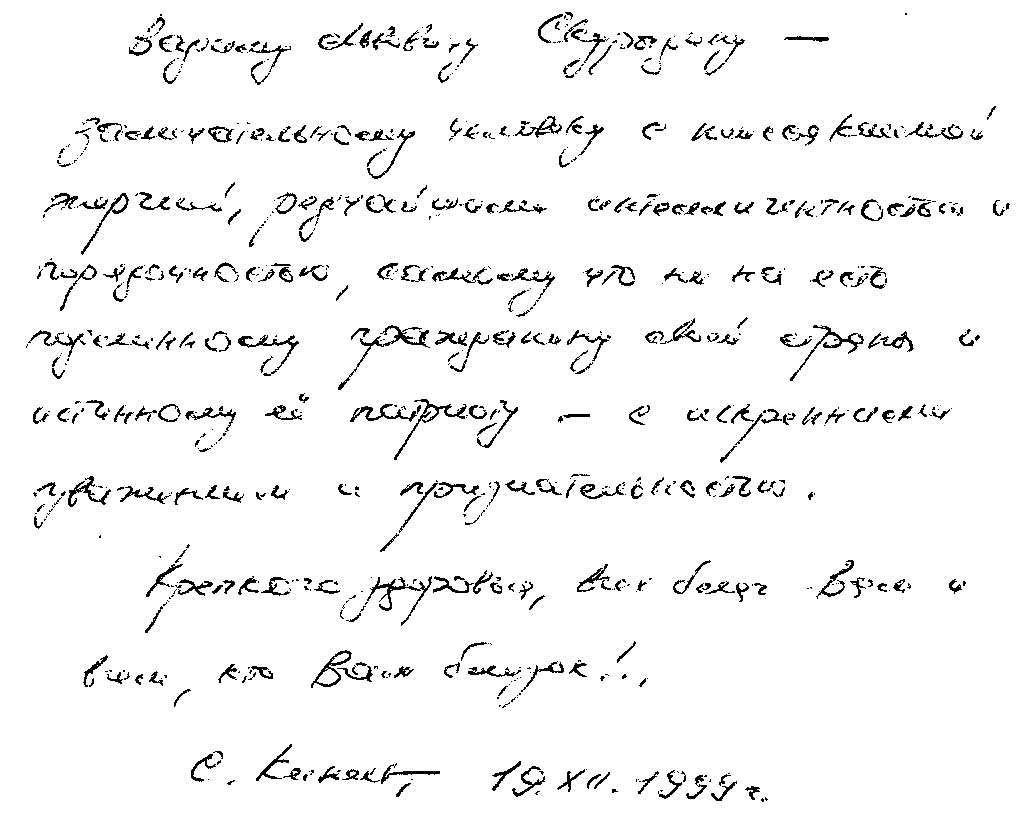 Вадиму Львовичу Скуратину —
замечательному человеку с неиссякаемой
энергией, редчайшими интеллигентностью и
порядочностью, самому что ни на есть
подлинному гражданину своей страны и
истинному её патриоту — с искренними
уважением и признательностью.
Крепкого здоровья, всех благ Вам и
всем, кто Вам близок!..
С. 19.XII.1999 г.